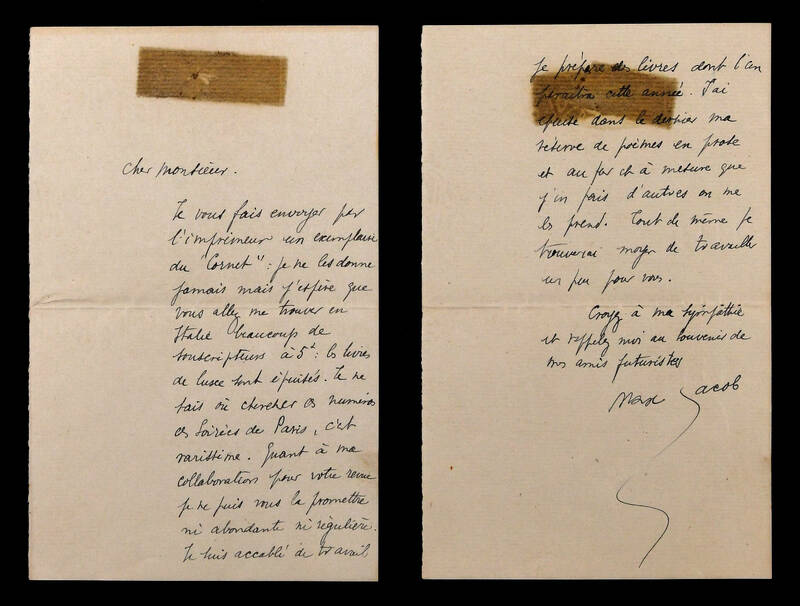 Cher Monsieur.
Je vous fais envoyer par
l'imprimeur un exemplaire
du "Cornet" : je ne les donne
jamais mais j'espère que
vous allez me trouver en
Italie beaucoup de
souscripteurs à 5f : les livres
de luxe sont épuisés. Je ne
sais où chercher ces numéros
des Soirées de Paris, c'est
rarissime. Quant à ma
collaboration pour votre revue
je ne puis vous la promettre
ni abondante ni régulière.
Je suis accablé de travail
je prépare des livres dont l'un
paraîtra cette année. J'ai
dans le dernier ma
réserve de poèmes en prose
et au fur et à mesure que
j'en fais d'autres on me
les prend. Tout de même je
trouverai moyen de travailler
un peu pour vous.
Croyez à ma sympathie
et rappelez moi au souvenir de
nos amis futuristes
Max Jacob